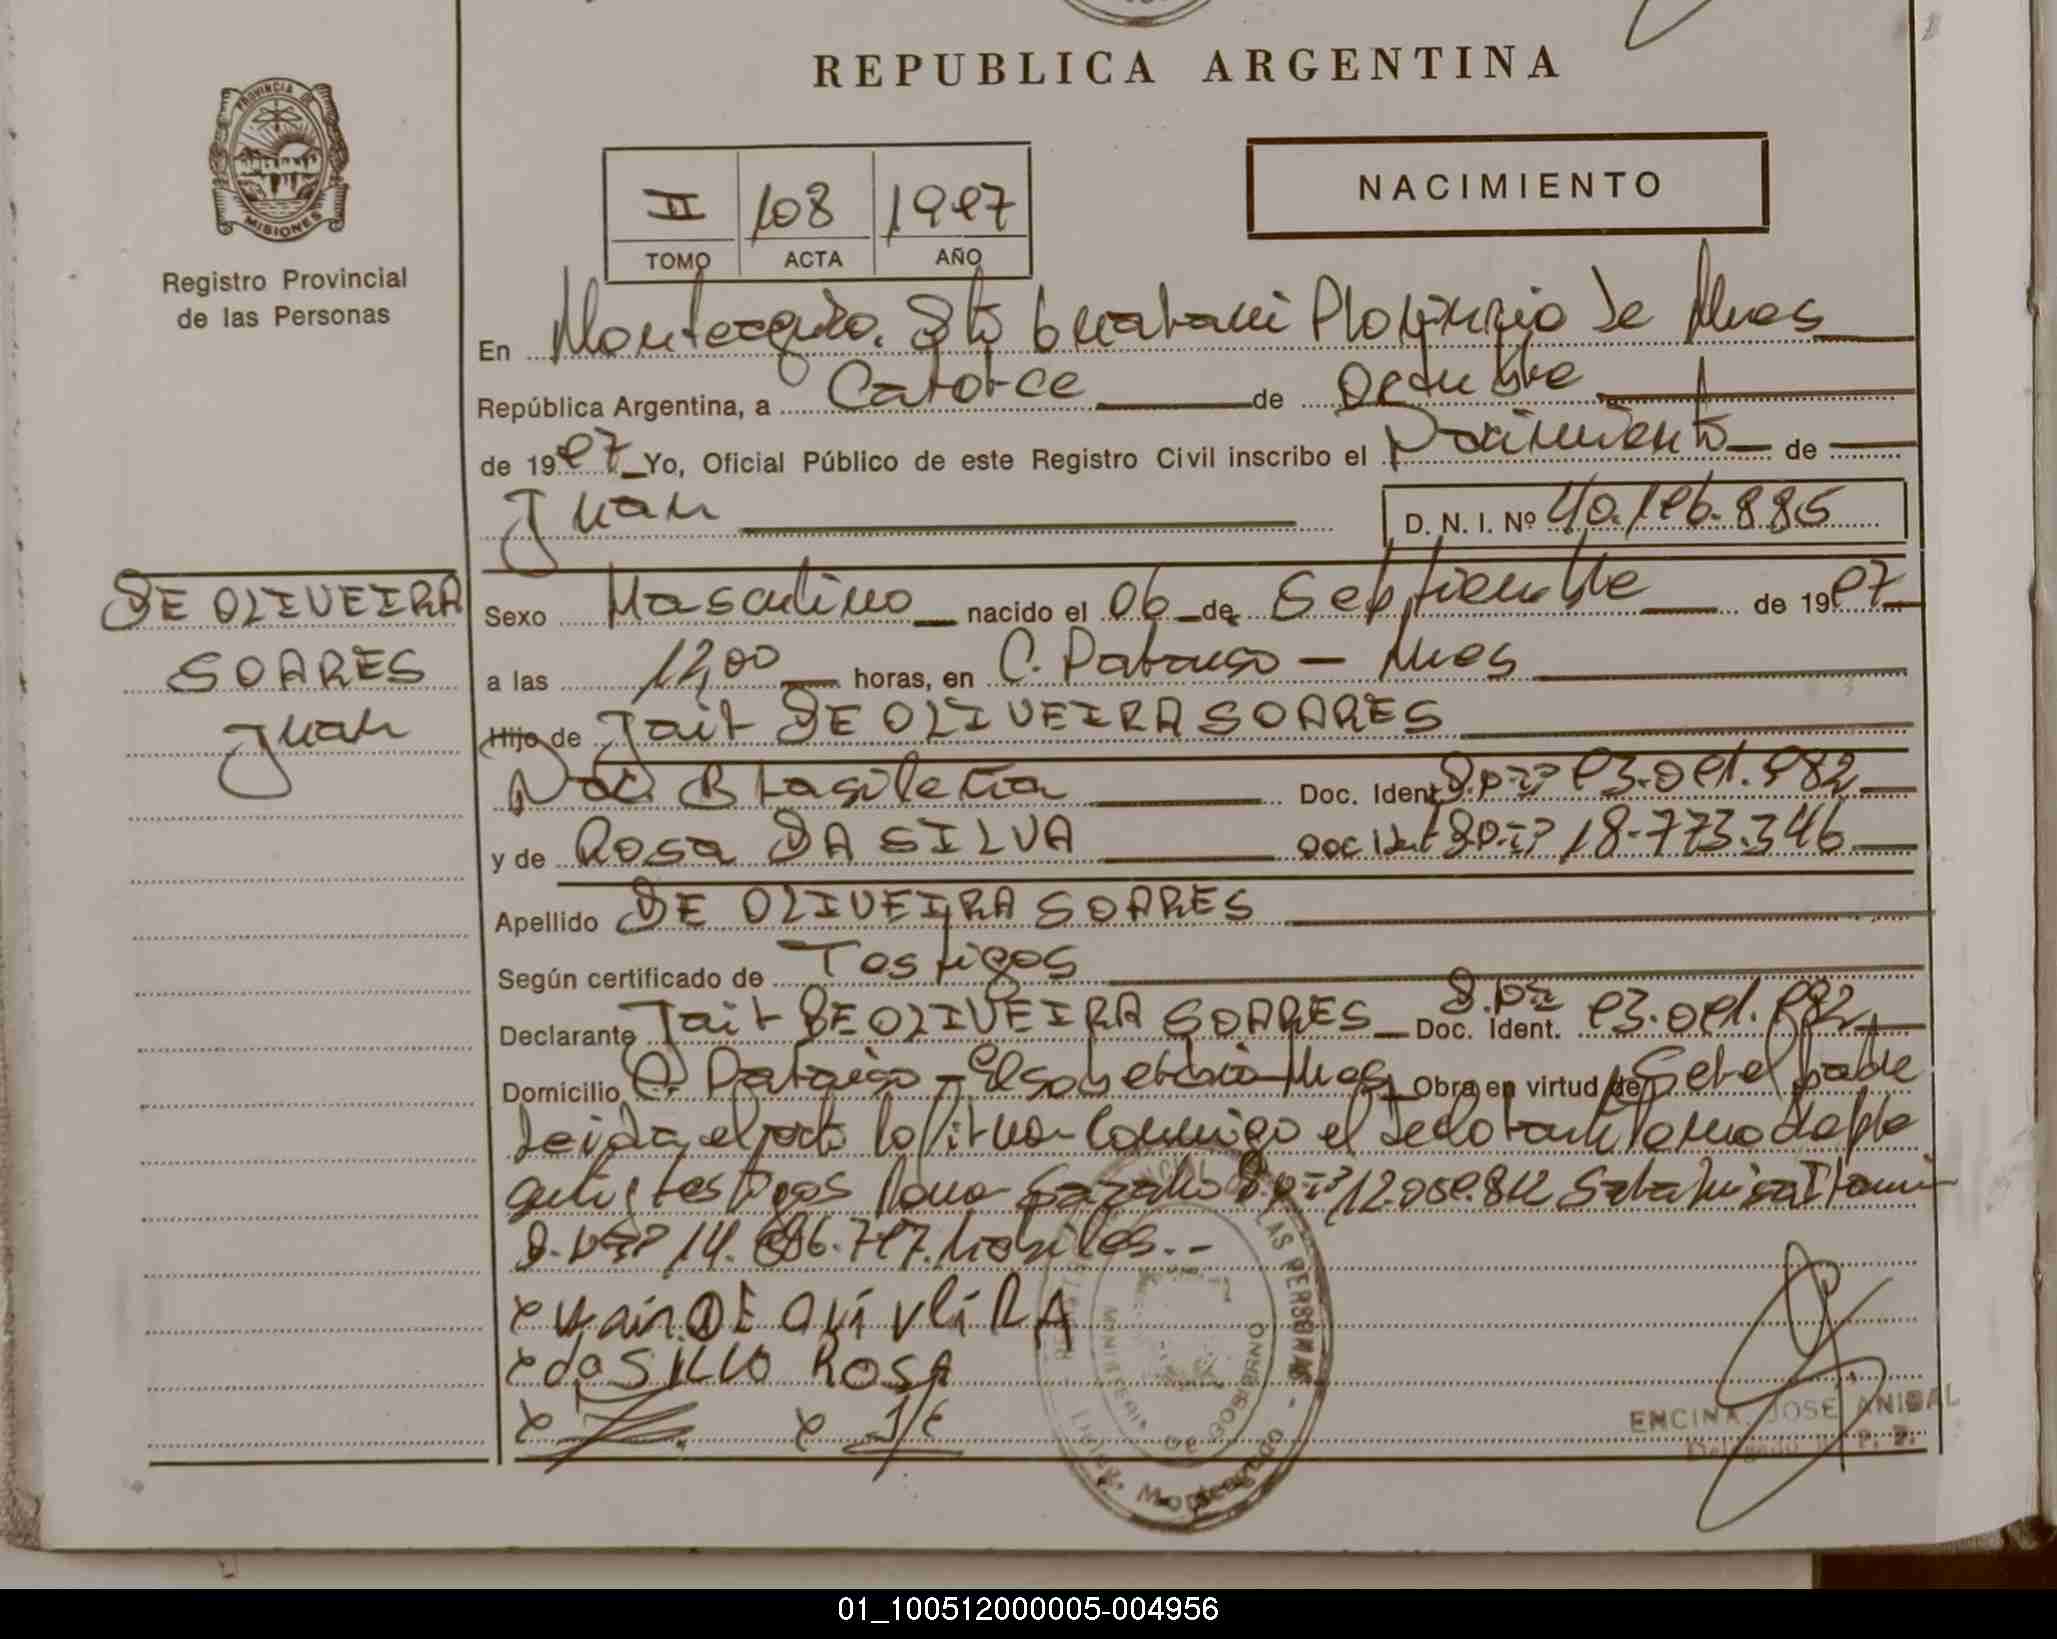 REPUBLICA ARGENTINA
PROVINCIA DE
MISIONES
Registro Provincial
de las Personas
NACIMIENTO
II 108 1997
TOMO ACTA AÑO
En Monteagudo. Dto Guarani Provincia de Mnes
República Argentina, a Catorce de Octubre
de 1997 Yo, Oficial Público de este Registro Civil inscribo el Nacimiento de
Juan D. N. I. Nº 40.196.885
DE OLIVEIRA
SOARES
Juan
Sexo Masculino nacido el 06 de Septiembre de 1997
a las 12,00 horas, en C. Paraiso - Mnes
Hijo de Jair DE OLIVEIRA SOARES
Nac. Brasilera Doc. Ident. D.Nº 93.091.982
y de Rosa DA SILVA Doc Ident D.Nº 18.773.346
Apellido DE OLIVEIRA SOARES
Según certificado de Testigos
Declarante Jair DE OLIVEIRA SOARES Doc. Ident. D.Nº 93.091.982
Domicilio C. Paraiso - El Soberbio Mnes Obra en virtud de Ser el padre
Leida el acta la firman conmigo el declarante la madre
testigos D.Nº 12.059.812
D.Nº 14. habiles.-
x DE
x da SILVO ROSA
x x
LAS PERSONAS
MINISTERIO DE GOBIERNO
Monteagudo
ENCINA, JOSE ANIBAL
Delegado R. P. P.
01_100512000005-004956